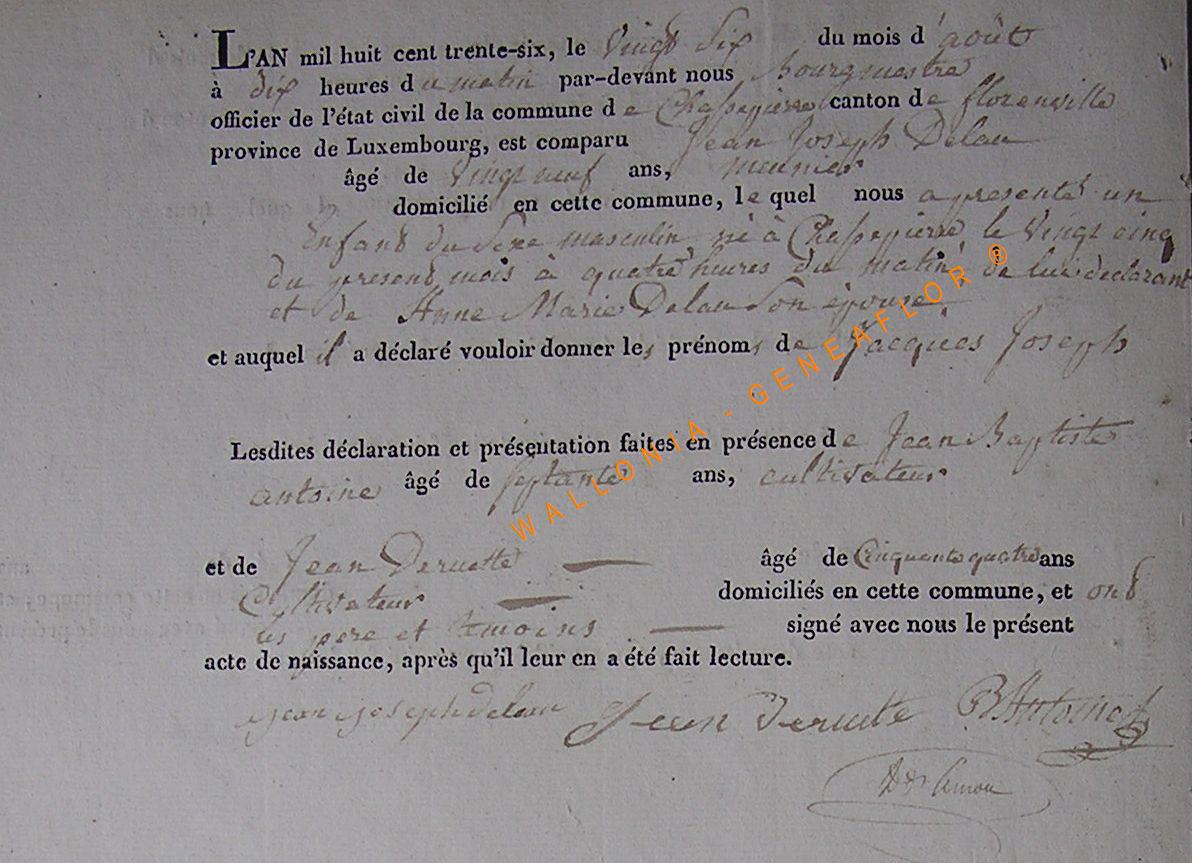 L'AN mil huit cent trente-six, le Vingt Six du mois d'août
à dix heures du matin par-devant nous Bourgmestre
officier de l'état civil de la commune de Chassepierre canton de florenville
province de Luxembourg, est comparu Jean Joseph Delau
âgé de Vingt neuf ans, meunier
domicilié en cette commune, le quel nous a presenté un
Enfant du Sexe masculin, né à Chassepierre le Vingt cinq
du present mois à quatre heures du matin, de lui declarant
et de Anne Marie Delau Son épouse,
et auquel il a déclaré vouloir donner les prénoms de Jacques Joseph
Lesdites déclaration et présentation faites en présence de Jean Baptiste
antoine âgé de septante ans, cultivateur
et de Jean Deruette âgé de Cinquante quatre ans
Cultivateur domiciliés en cette commune, et ont
les pere et temoins signé avec nous le présent
acte de naissance, après qu'il leur en a été fait lecture.
jean joseph delau Jean Deruette B Antoine
WALLONIA - GENEAFLOR ®